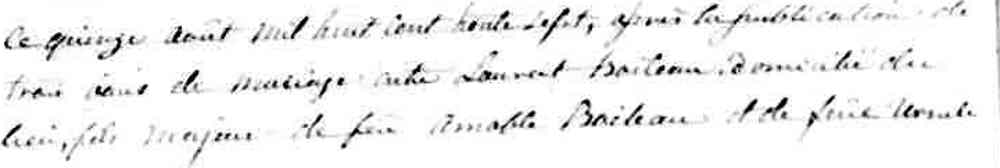 Ce quinze août mil huit cent trente sept, après la publication de
trois bans de mariage entre Laurent Boileau, domicilié du
lieu, fils majeur de feu Amable Boileau et de feüe Ursule